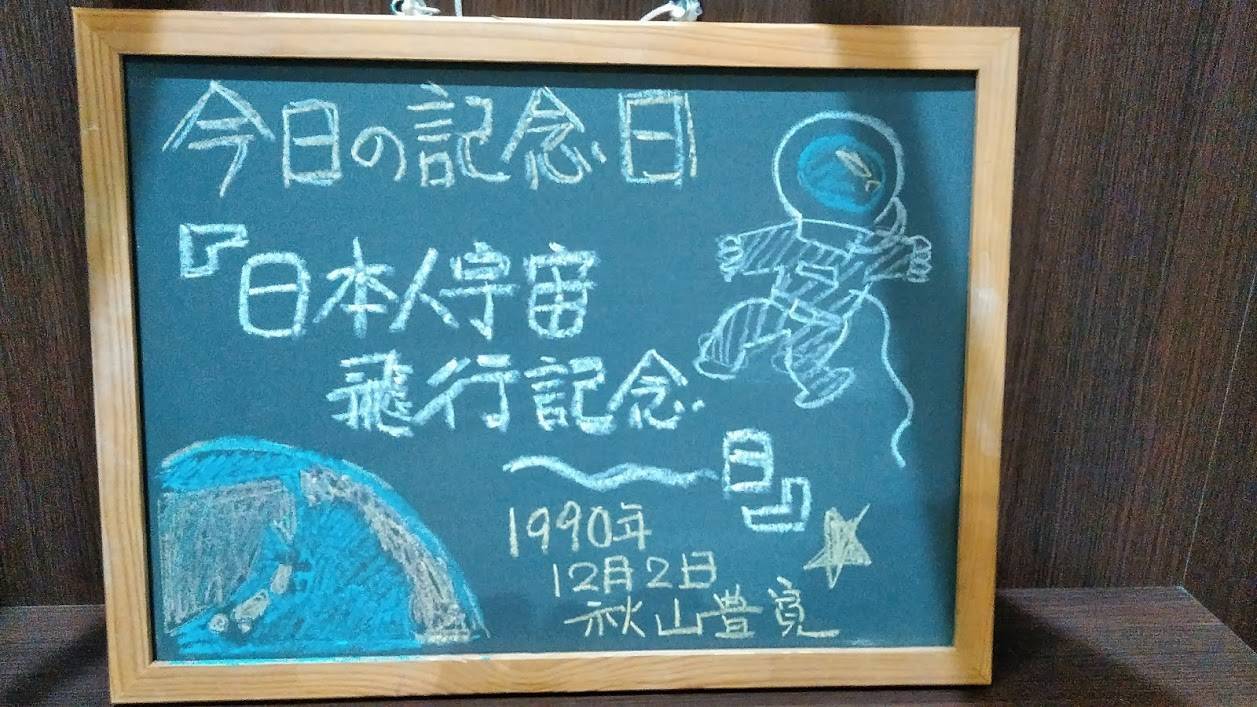 今日の記念日
『日本人宇宙
飛行記念
日』
1990年
12月2日
秋山豊寛